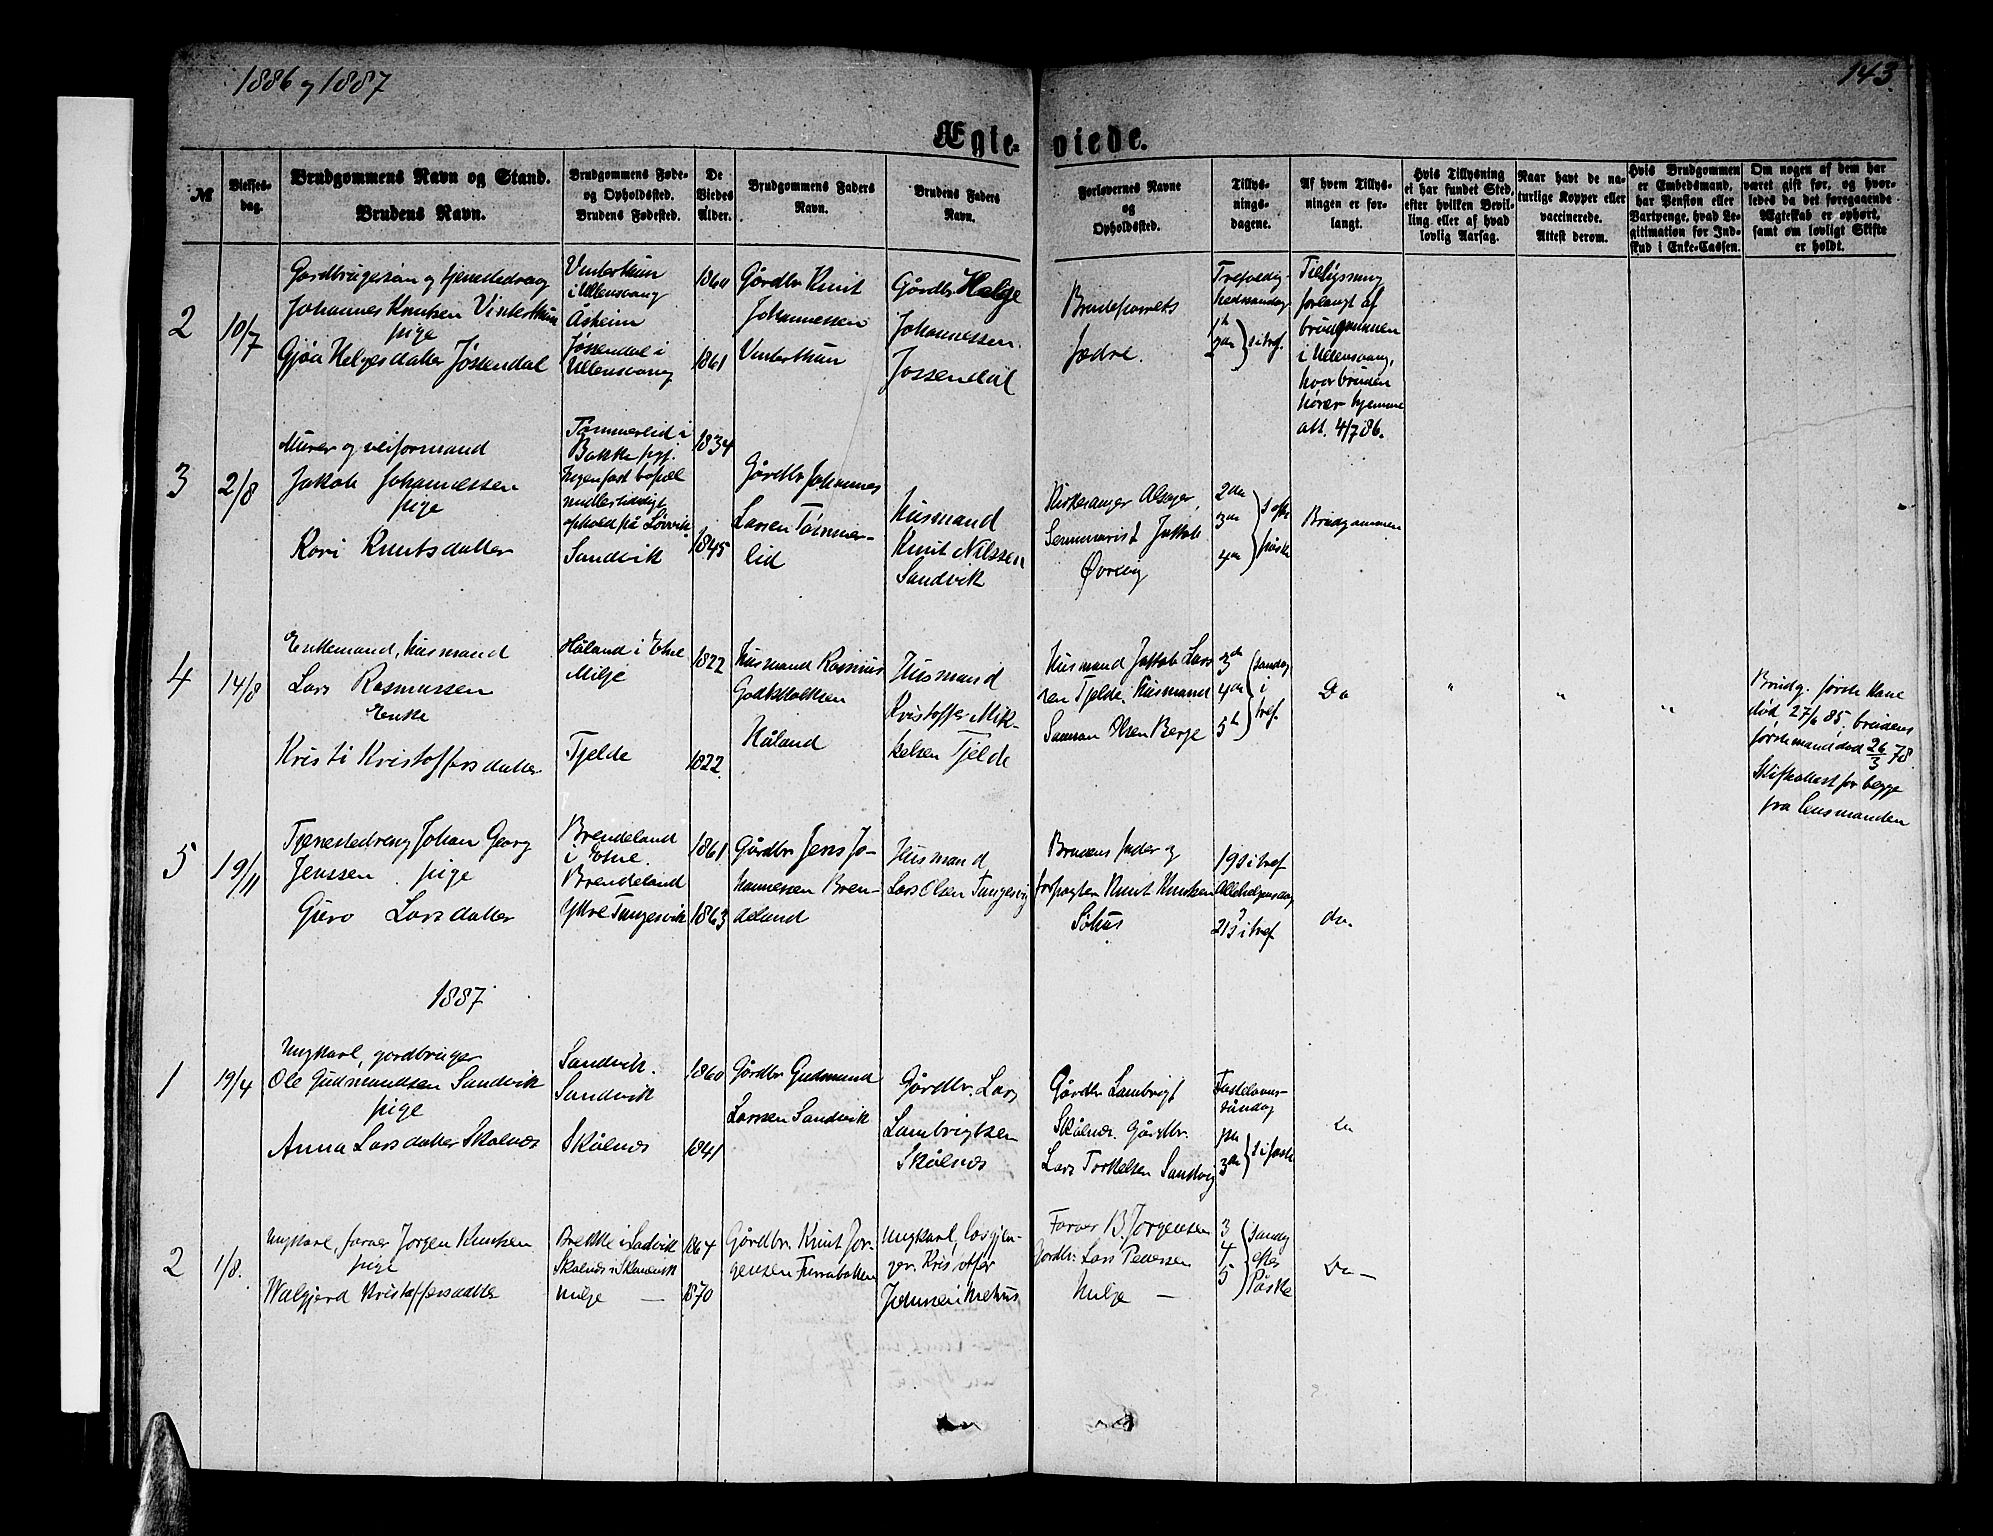 1886 og 1887
143.
Ægte-viede.
№
Vielses-
dag.
Brudgommens Navn og Stand.
Brudens Navn.
Brudgommens Føde-
og Opholdssted.
Brudens Fødested.
De
Viedes
Alder.
Brudgommens Faders
Navn.
Brudens Faders
Navn.
Forlovernes Navne
og
Opholdssted.
Tillys-
nings-
dagene.
Af hvem Tillys-
ningen er for-
langt.
Hvis Tillysning
ei har fundet Sted,
efter hvilken Bevil-
ling eller af hvad
lovlig Aarsag.
Naar havt de na-
turlige Kopper eller
vaccinerede.
Attest derom.
Hvis Brudgommen
er Embedsmand,
har Pension eller
Vartpenge, hvad Le-
gitimation for Ind-
skud i Enke-Cassen.
Om nogen af dem har
været gift før, og hvor-
ledes da det foregaaende
Ægteskab er ophørt,
samt om lovligt Skifte
er holdt.
2
10/7
Gårdbrugersøn og tjenestedreng
Johannes Knutsen Vinterthun
pige
Gjøa Helgesdatter Jøssendal
Vinterthun
i Ullensvang
Åsheim
Jøssendal i
Ullensvang
1860
1861
Gårdbr Knut
Johannessen
Vinterthun
Gårdbr Helge
Johannessen
Jøssendal
Brudeparrets
fædre.
Trefoldig-
hedssøndag
1ste
2den } s i tref.
Tillysning
forlangt af
brudgommen
i Ullensvang,
hvor bruden
hører hjemme
att. 4/7 86.
3
2/8
Murer og veiformand
Jakob Johannessen
pige
Kari Knutsdatter
Tømmerlid i
Bakke pgj.
Ingen fast bopæl
midlertidigt
ophold på Løvvik
Sandvik
1834
1845
Gårdbr Johannes
Larsen Tømmer-
lid
Husmand
Knut Nilssen
Sandvik
Kirkesanger Alsager,
Seminarist Jakob
Øvrevig
2den
3den
4de } s efter påske
Brudgommen
4
14/8
Enkemand, husmand
Lars Rasmussen
Enke
Kristi Kristoffersdatter
Håland i Etne
Milje
Tjelde
1822
1822
Husmand Rasmus
Godskalksen
Håland
Husmand
Kristoffer Mik-
kelsen Tjelde
Husmand Jakob Lars
sen Tjelde. Husmand
Samson Olsen Berge
3de
4de
5te } søndag i tref.
Do
"
"
"
Brudg. første kone
død 27/6 85, brudens
første mand død 26/3 78.
Skifteattest for begge
fra lensmanden
5
19/11
Tjenestedreng Johan Georg
Jenssen pige
Guro Larsdatter
Brendeland
i Etne.
Brendeland
Ytre Tungesvik
1861
1863
Gårdbr Jens Jo-
hannessen Bren-
deland
Husmand
Lars Olsen Tungesvig
Brudens fader og
forpagter Knut Knutsen
Søhus
19 s i tref
Allehelgensdag
21 s i tref
do.
1887
1
19/4
Ungkarl, gårdbruger
Ole Gudmundsen Sandvik
pige
Anna Larsdatter Skålnæs
Sandvik.
Sandvik
Skålnæs
1860
1841
Gårdbr Gudmund
Larssen Sandvik
Gårdbr. Lars
Lambrigtsen
Skålnæs
Gårdbr Lambrigt
Skålnæs. Gårdbr.
Lars Torkelsen Sandvig
Fastelavns-
søndag
1ste
3de } s i faste
do
2
1/8.
Ungkarl, farver Jørgen Knutsen
pige
Walgjerd Kristoffersdatter
Brekke i Sandvik
Skålnæs i Skånevik
Milje —
1864
1870
Gårdbr. Knut Jør-
gensen Furrabakken
Ungkarl, losgjæn-
ger Kristoffer
Johnsen Mehus
Farver B. Jørgensen
Gårdbr. Lars Pedersen
Milje —
3
4
5 } søndag efter Påske
Do —